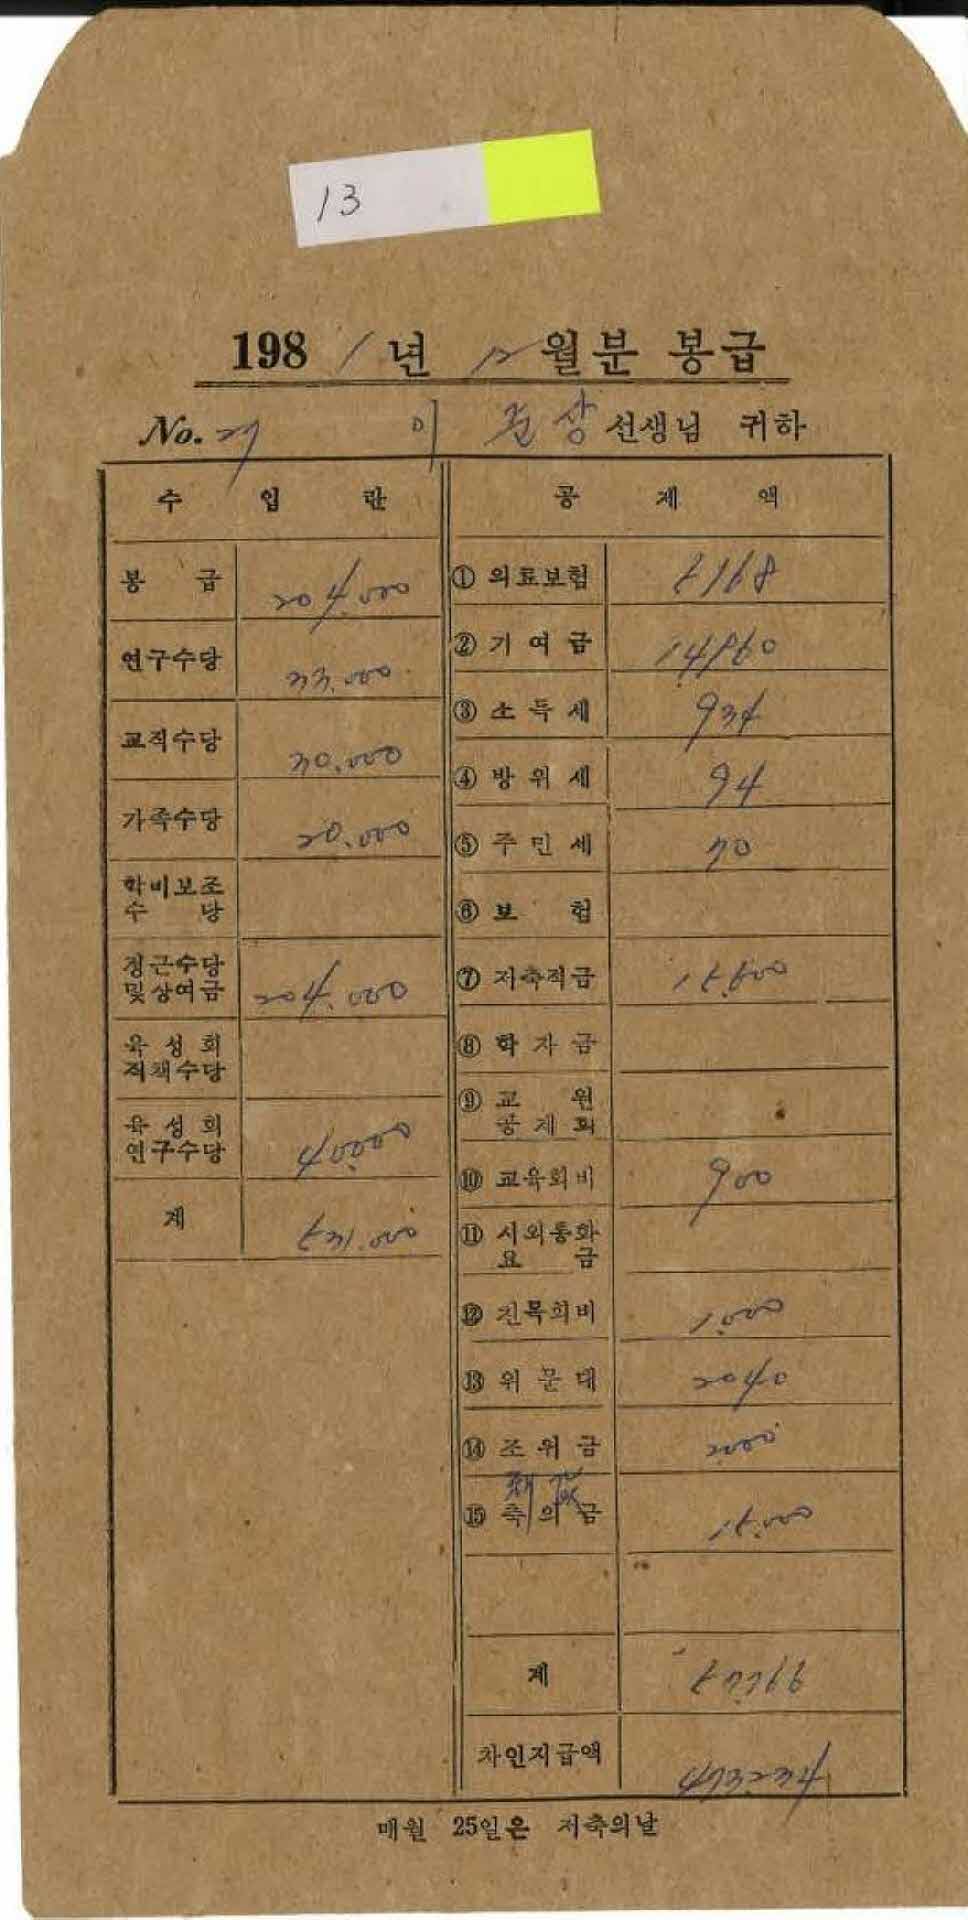 13
198 1 년 12 월분 봉급
No. 27 이 상 선생님 귀하
수 입 란 공 제 액
봉 급 204.000 ① 의료보험 5168
연구수당 33.000 ② 기여금 14960
교직수당 30.000 ③ 소득세 934
가족수당 20.000 ④ 방위세 94
학비보조 수 당 ⑤ 주민세 70
정근수당 및상여금 204.000 ⑥ 보 험
육성회 직책수당 ⑦ 저축적금 15.600
육성회 연구수당 40.000 ⑧ 학자금
계 531.000 ⑨ 교 원 공제회
⑩ 교육회비 900
⑪ 시외통화 요 금
⑫ 친목회비 1.000
⑬ 위문대 2040
⑭ 조위금 2000
⑮ 축의금 15.000
계 57766
차인지급액 473234
매월 25일은 저축의날